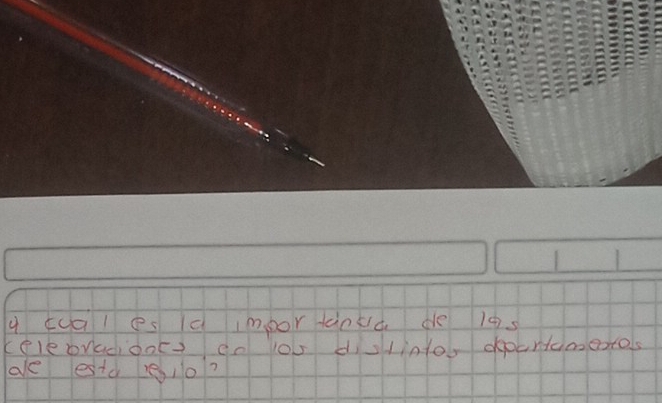 4 cual es la importancia de las
celebraciones en los distintos departamentos
de esta